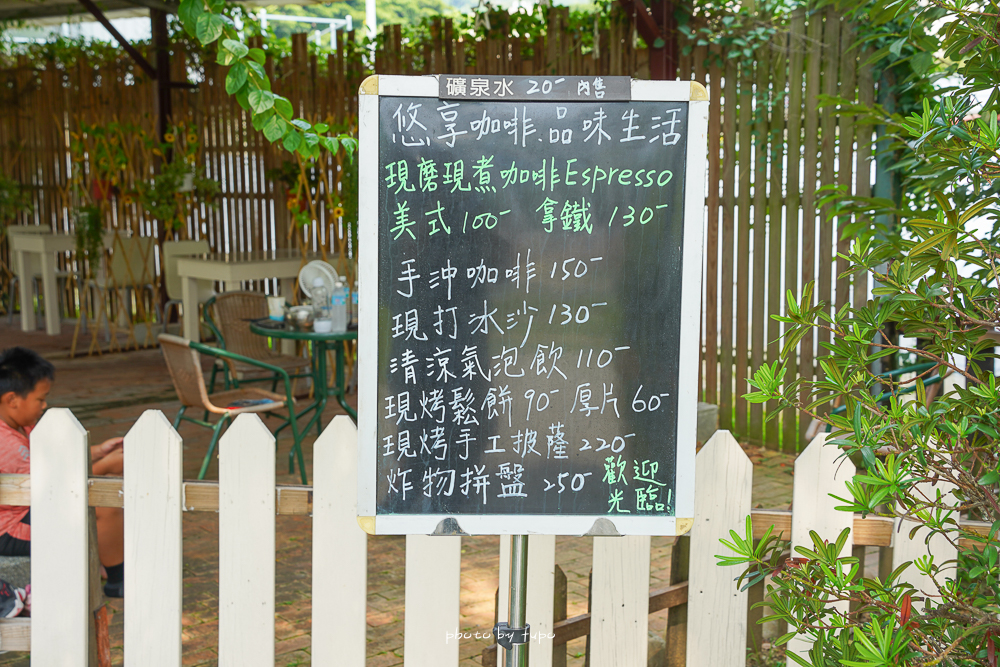 礦泉水 20- 內售
悠享咖啡.品味生活
現磨現煮咖啡Espresso
美式100- 拿鐵130-
手沖咖啡150-
現打冰沙130-
清涼氣泡飲110-
現烤鬆餅90- 厚片60-
現烤手工披薩220-
炸物拼盤250-
歡迎
光臨!
photo by fupo